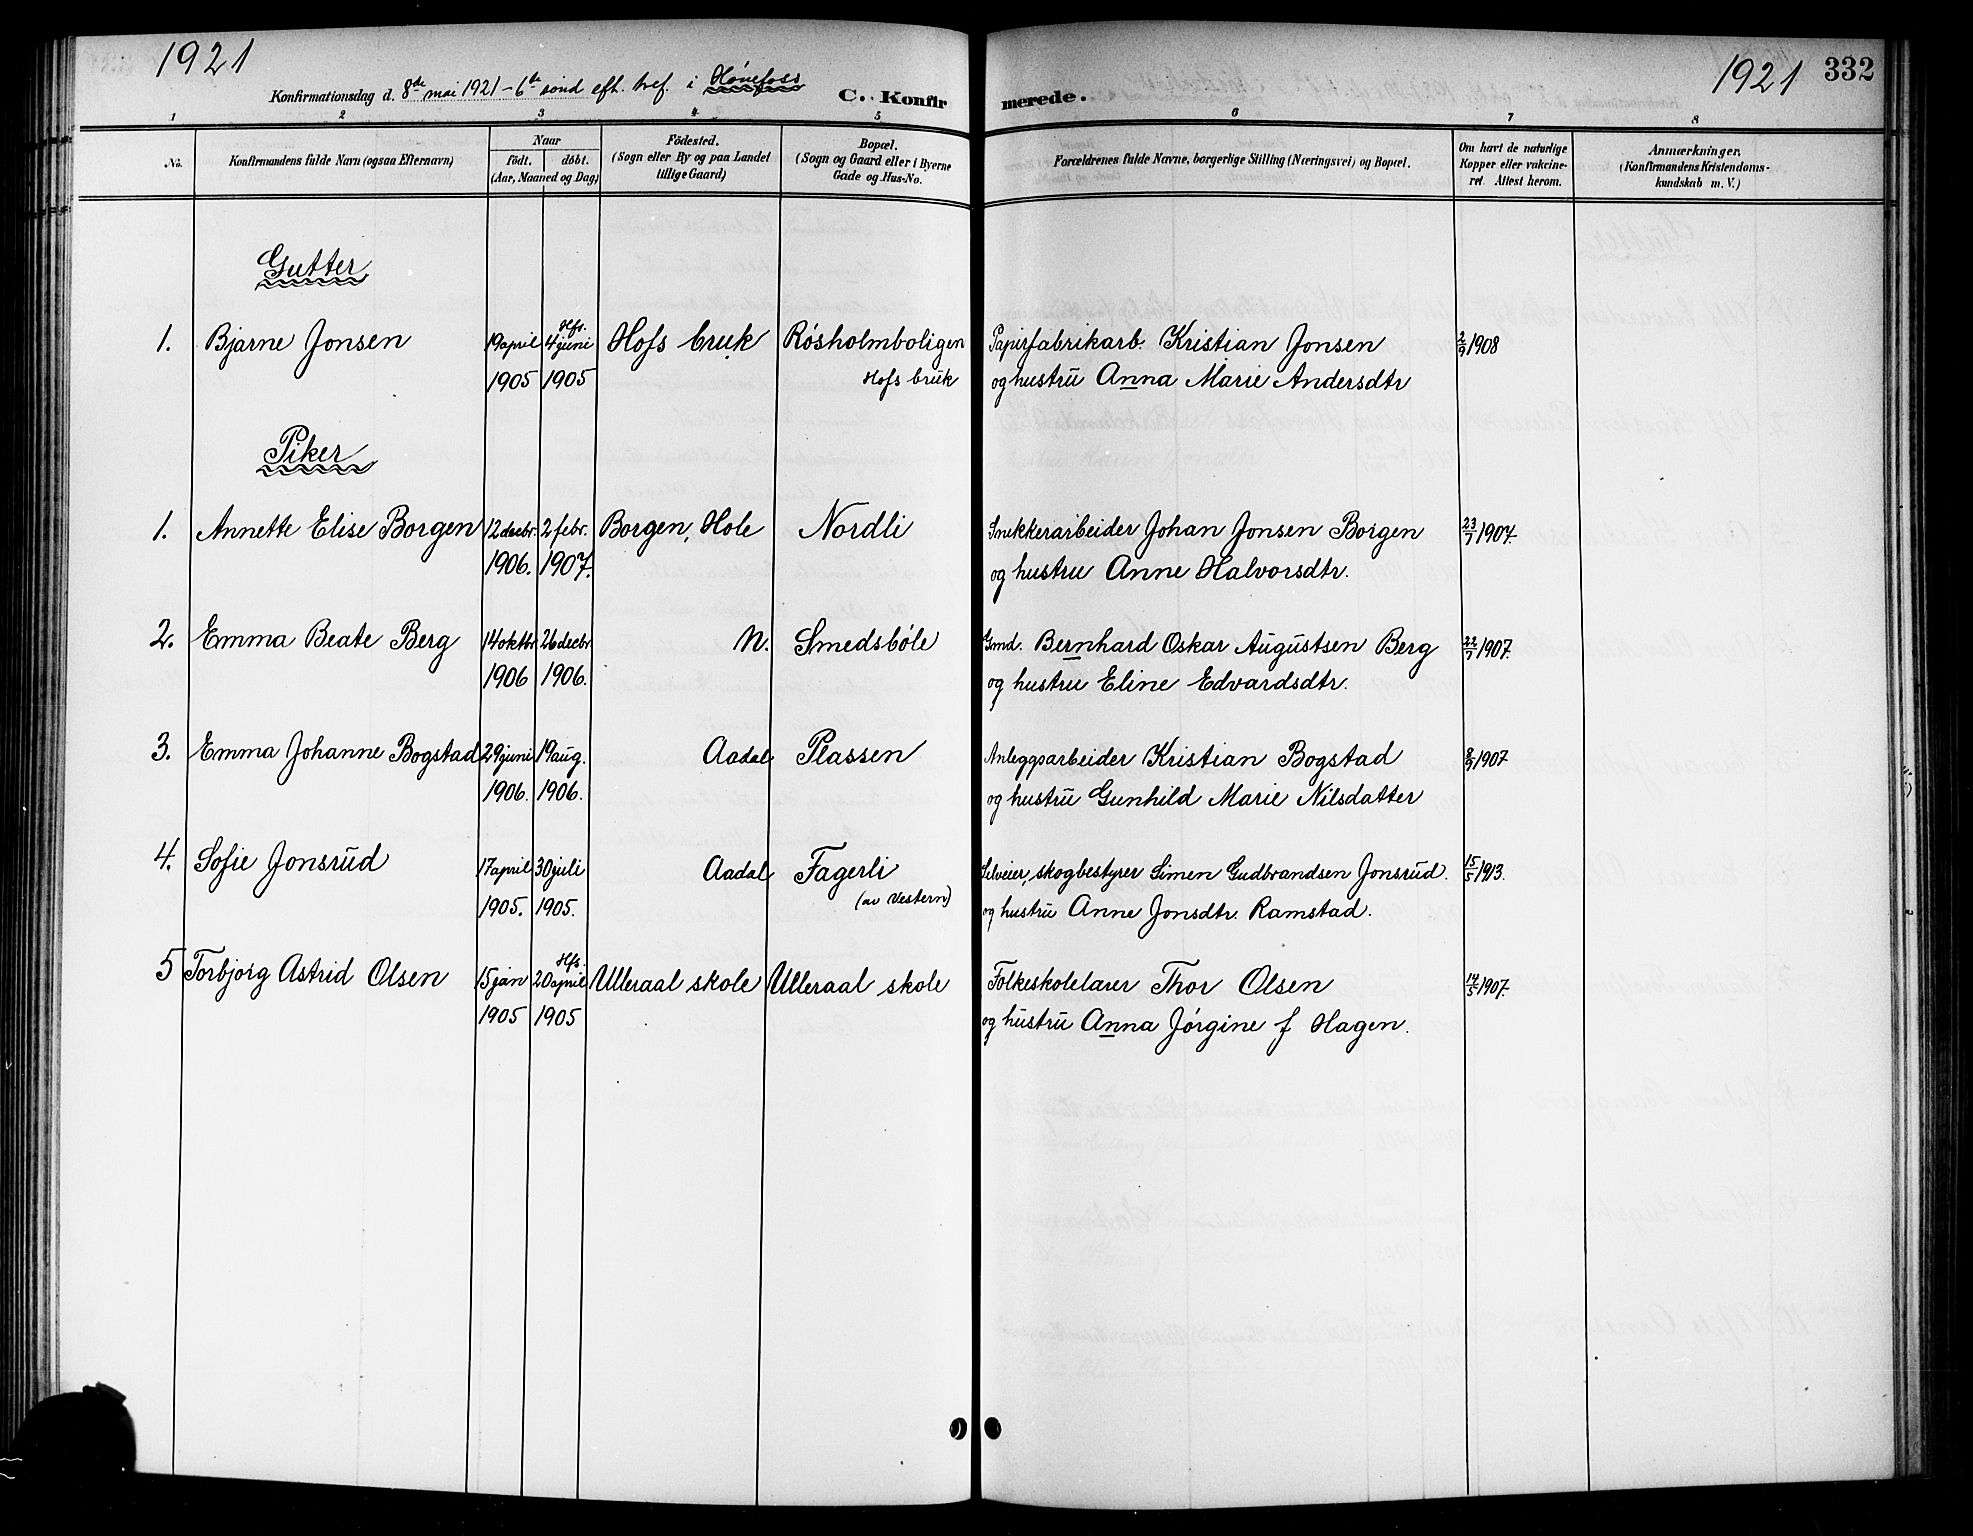 1921
Konfirmationsdag d. 8de mai 1921 - 6te sønd eft. tref. i Hønefoss
C. Konfir
merede.
1921
332
1 2 3 4 5
6 7 8
No.
Konfirmandens fulde Navn (ogsaa Efternavn)
Naar
födt. döbt.
(Aar, Maaned og Dag)
Födested.
(Sogn eller By og paa Landet
tillige Gaard)
Bopæl.
(Sogn og Gaard eller i Byerne
Gade og Hus-No.
Forældrenes fulde Navne, borgerlige Stilling (Næringsvei) og Bopæl.
Om havt de naturlige
Kopper eller vakcine-
ret. Attest herom.
Anmærkninger,
(Konfirmandens Kristendoms-
kundskab m. V.)
Gutter
Hfs.
1. Bjarne Jonsen 19 april 4 juni Hofs bruk Røsholmboligen Papirfabrikarb. Kristian Jonsen 2/9 1908
1905 1905 Hofs bruk og hustru Anna Marie Andersdtr
Piker
1. Annette Elise Borgen 12 decbr. 2 febr. Borgen, Hole Nordli Snekkerarbeider Johan Jonsen Borgen 23/7 1907.
1906. 1907. og hustru Anne Halvorsdtr.
2. Emma Beate Berg 14 oktbr 26 decbr N. Smedsbøle Gmd. Bernhard Oskar Augustsen Berg 22/7 1907.
1906 1906. og hustru Eline Edvardsdtr.
3. Emma Johanne Bogstad 29 juni 19 aug. Aadal Plassen Anleggsarbeider Kristian Bogstad 8/9 1907
1906. 1906. og hustru Gunhild Marie Nilsdatter
4. Sofie Jonsrud 17 april 30 juli Aadal Fagerli Selveier, skogbestyrer Simen Gudbrandsen Jonsrud. 15/5 1913.
1905. 1905. (av Vestern) og hustru Anne Jonsdtr. Ramstad.
Hfs.
5 Torbjørg Astrid Olsen 15 jan 20 april Ulleraal skole Ulleraal skole Folkeskolelærer Thor Olsen 14/5 1907.
1905 1905 og hustru Anna Jørgine f Hagen.